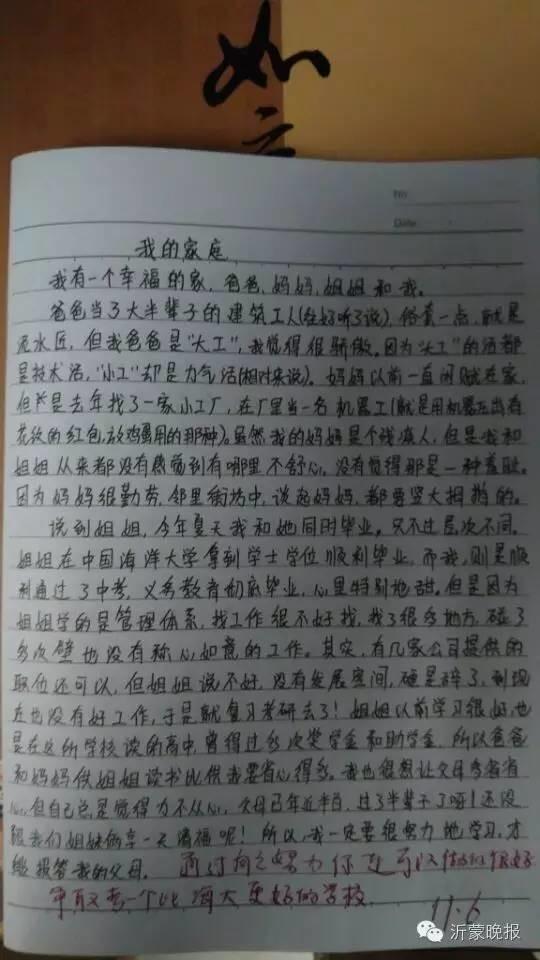 如
No
Date
我的家庭
我有一个幸福的家,爸爸,妈妈,姐姐和我。
爸爸当了大半辈子的建筑工人(往好听了说),俗套一点,就是
泥水匠,但我爸爸是“大工”,我觉得很骄傲。因为“大工”的活都
是技术活,“小工”却是力气活(相对来说)。妈妈以前一直闲赋在家,
但是去年找了一家小工厂,在厂里当一名机器工(就是用机器压出有
花纹的红包,放鸡蛋用的那种)。虽然我的妈妈是个残疾人,但是我和
姐姐从来都没有感觉到有哪里不舒心,没有觉得那是一种羞耻。
因为妈妈很勤劳,邻里街坊中,谈起妈妈,都要竖大拇指的。
说到姐姐,今年夏天我和她同时毕业。只不过层次不同。
姐姐在中国海洋大学拿到学士学位顺利毕业,而我,则是顺
利通过了中考,义务教育彻底毕业,心里特别地甜。但是因为
姐姐学的是管理体系,找工作很不好找,找了很多地方,碰了
多次壁也没有称心如意的工作。其实,有几家公司提供的
职位还可以,但姐姐说不好,没有发展空间,硬是辞了,到现
在也没有好工作,于是就复习考研去了!姐姐以前学习很好,也
是在这所学校读的高中,曾得过多次奖学金和助学金,所以爸爸
和妈妈供姐姐读书比供我要省心得多。我也很想让父母多省省
心,但自己总是觉得力不从心,父母已年近半百,过了半辈子了呀!还没
跟我们姐妹俩享一天清福呢!所以,我一定要很努力地学习,才
能报答我的父母。通过自己努力你也可以做的很好
争取考一个比海大更好的学校
11.6
沂蒙晚报